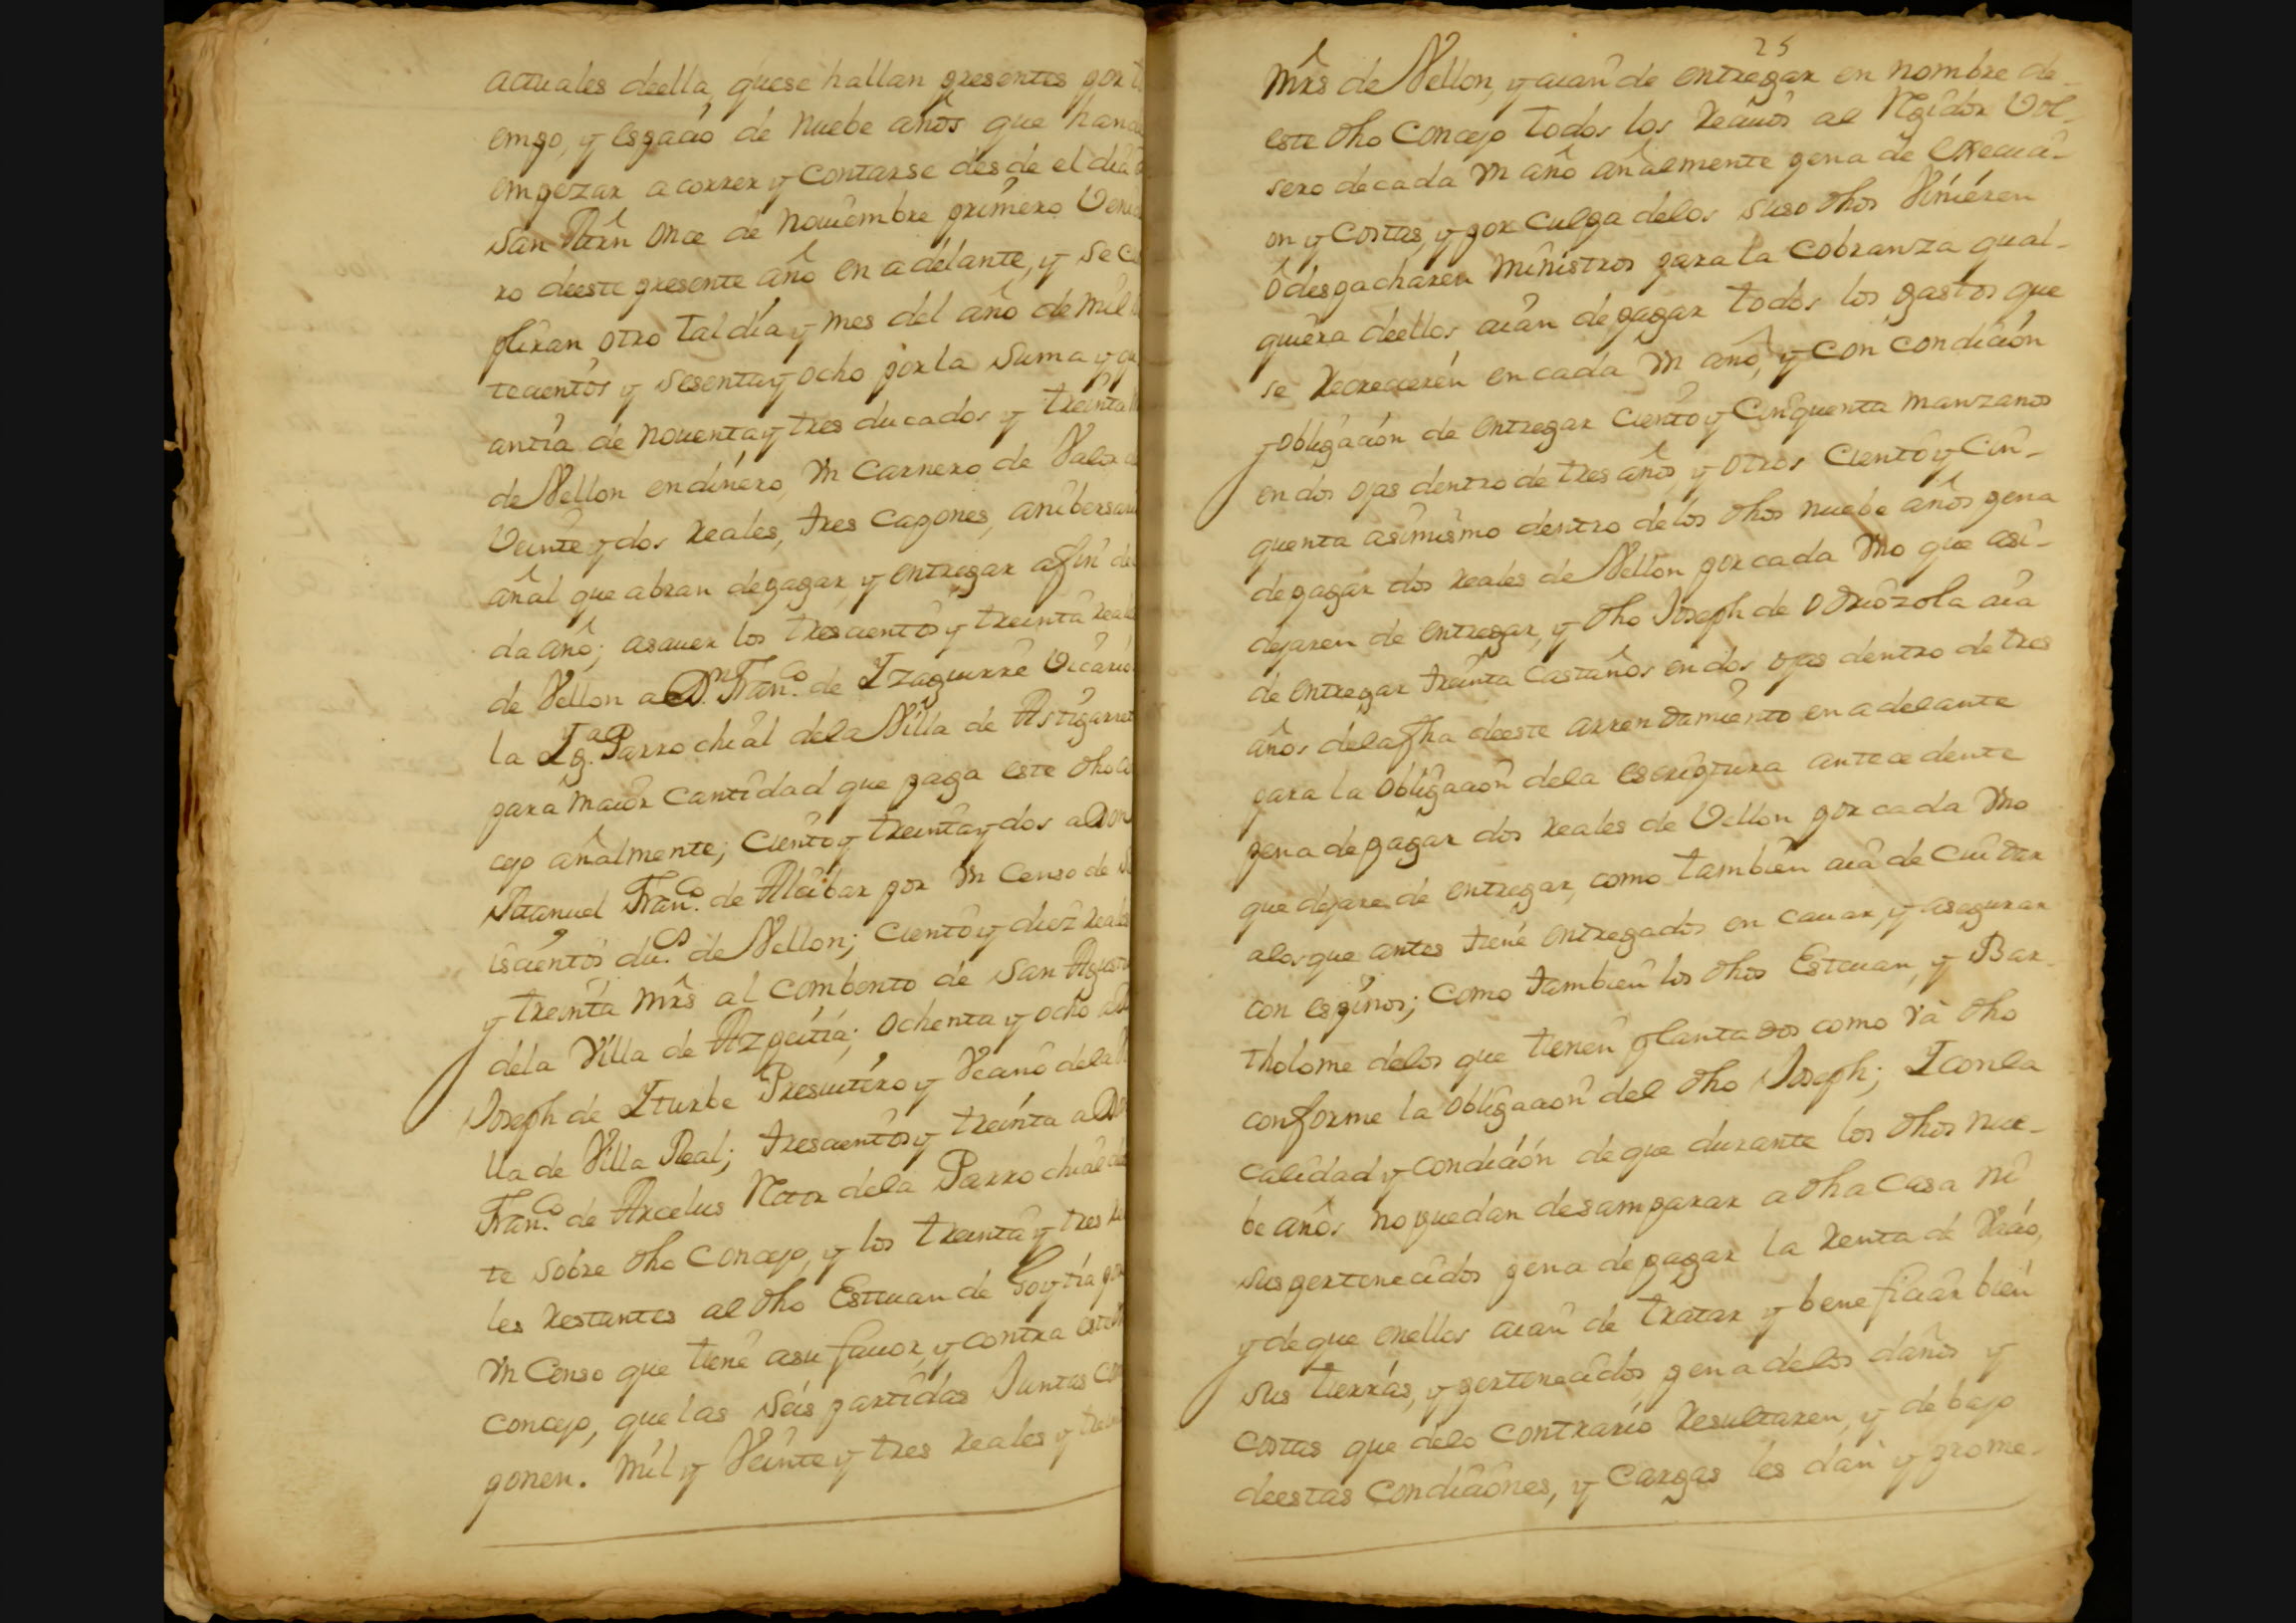 actuales deella, quese hallan presentes por t
empo, y espacio de nuebe años que han
empezar a correr y contarse desde el dia
san Mrn once de Nouiembre primero Veni
ro deeste presente año en adelante, y se cu
pliran otro tal día y mes del año de mil
tecientos y sesenta y ocho por la suma y qu
antía de nouenta y tres ducados y treinta
de Vellon en dinero, Vn Carnero de Valor
Veinte y dos reales, tres capones, anibersari
añal que abran depagar, y entregar afin de
da año; asauer los trescientos y treinta reale
de Vellon a Dn. Franco. de Yzaguirre Vicario
la Yga. Parrochial dela Villa de Astigarret
para maior Cantidad que paga este dho
cejo añalmente; Ciento y treinta y dos a Don
Manuel Franco. de Alcibar por Vn Censo de
iscientos dus. de Vellon; Ciento y diez reales
y treinta mrs al Combento de San Agust
dela Villa de Azpeitia; ochenta y ocho a
Joseph de Yturbe Presuitero y Vecino dela
lla de Villa Real; trescientos y treinta a D
Franco. de Arcelus Rtor dela Parrochial
te sobre dho Concejo, y los treinta y tres
les restantes al dho Esteuan de Goytia por
Vn Censo que tiene asu fauor, y contra este
Concejo, que las seis partidas Juntas Co
ponen. mil y Veinte y tres reales y trei
25
mrs de Vellon, y aian de entregar en nombre de
este dho Concejo todos los reciuos al Regidor Vol-
sero de cada Vn año añalmente pena de execuci-
on y Costas, y por culpa delos suso dhos Viniéren
ò despacharen ministros para la Cobranza qual-
quiera deellos, aian depagar todos los gastos que
se recrecerén en cada Vn año, y con condición
y obligación de entregar Ciento y Cinquenta manzanos
en dos ojas dentro de tres años y otros Ciento y Cin-
quenta asimismo dentro delos dhos nuebe años pena
depagar dos reales de Vellon por cada Vno que asi-
dejaren de entregar, y dho Joseph de Odriozola aia
de entregar treinta Castaños en dos ojas dentro de tres
años dela fha deeste arrendamiento en adelante
para la obligacion dela escriptura antecedente
pena depagar dos reales de Vellon por cada Vno
que dejare de entregar, como tambien aia de Cuidar
alos que antes tiene entregados en cauar, y asegurar
con espinos; como tambien los dhos Esteuan, y Bar-
tholome delos que tienen plantados como và dho
conforme la obligacion del dho Joseph; Y con la
calidad y condición de que durante los dhos nue-
be años no puedan desamparar a dha Casa ni
sus pertenecidos pena depagar la renta de Vacio,
y de que enellos aian de tratar y beneficiar bien
sus tierras, y pertenecidos, pena delos daños y
costas que delo contrario resultaren, y debajo
deestas condiciones, y Cargas les dan y prome-